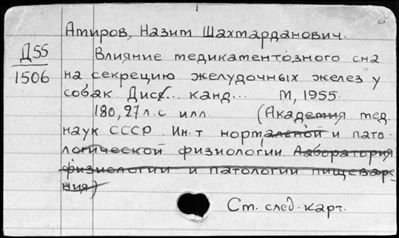 Амиров, Назит Шахмарданович.
Д55
1506
Влияние медикаментозного сна
на секрецию желудочных желез у
собак. Дисс... канд... М, 1955.
180, 27 л. с илл. (Академия мед.
наук СССР. Ин-т нормальной и пато-
логической физиологии Лаборатория
физиологии и патологии пищеваре-
ния)
См. след. карт.